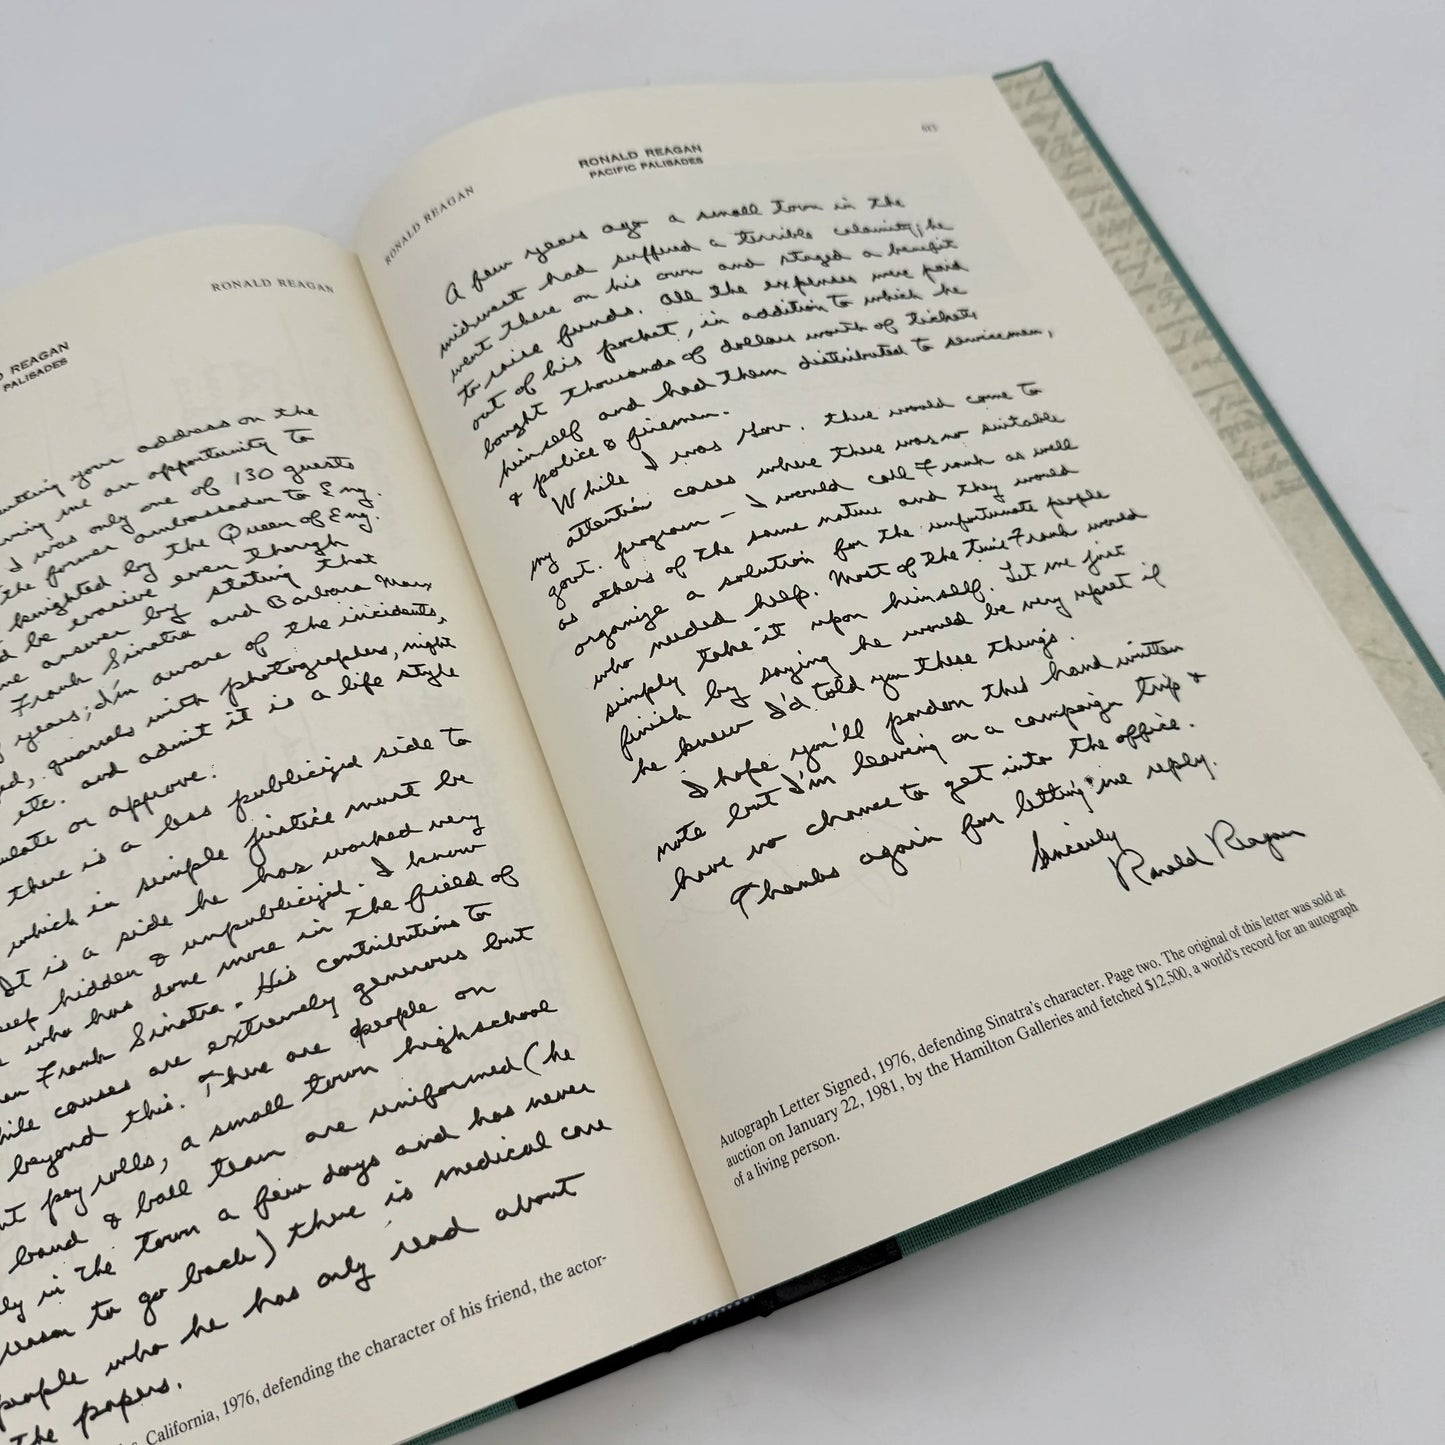 RONALD REAGAN
REAGAN
PALISADES
your address on the
me an opportunity to
I was only one of 130 guests
the former ambassador to Eng.
knighted by the Queen of Eng.
be evasive even though
answer by stating that
Frank Sinatra and Barbara Marx
years; I'm aware of the incidents,
quarrels with photographers, night
etc. and admit it is a life style
or approve.
there is a less publicized side to
which in simple justice must be
It is a side he has worked very
hidden & unpublicized. I know
who has done more in the field of
Frank Sinatra. His contributions to
causes are extremely generous but
beyond this. There are people on
pay rolls, a small town highschool
band & ball team are uniformed (he
in the town a few days and has never
reason to go back) there is medical care
people who he has only read about
the papers.
California, 1976, defending the character of his friend, the actor-
RONALD REAGAN
RONALD REAGAN
PACIFIC PALISADES
A few years ago a small town in the
midwest had suffered a terrible calamity; he
went there on his own and staged a benefit
to raise funds. All the expenses were paid
out of his pocket, in addition to which he
bought thousands of dollars worth of tickets
himself and had them distributed to servicemen,
& police & firemen.
While I was Gov. there would come to
my attention cases where there was no suitable
govt. program – I would call Frank as well
as others of the same nature and they would
organize a solution for the unfortunate people
who needed help. Most of the time Frank would
simply take it upon himself. Let me just
finish by saying he would be very upset if
he knew I'd told you these things.
I hope you'll pardon this hand written
note but I'm leaving on a campaign trip &
have no chance to get into the office.
Thanks again for letting me reply.
Sincerely
Ronald Reagan
Autograph Letter Signed, 1976, defending Sinatra's character. Page two. The original of this letter was sold at
auction on January 22, 1981, by the Hamilton Galleries and fetched $12,500, a world's record for an autograph
of a living person.